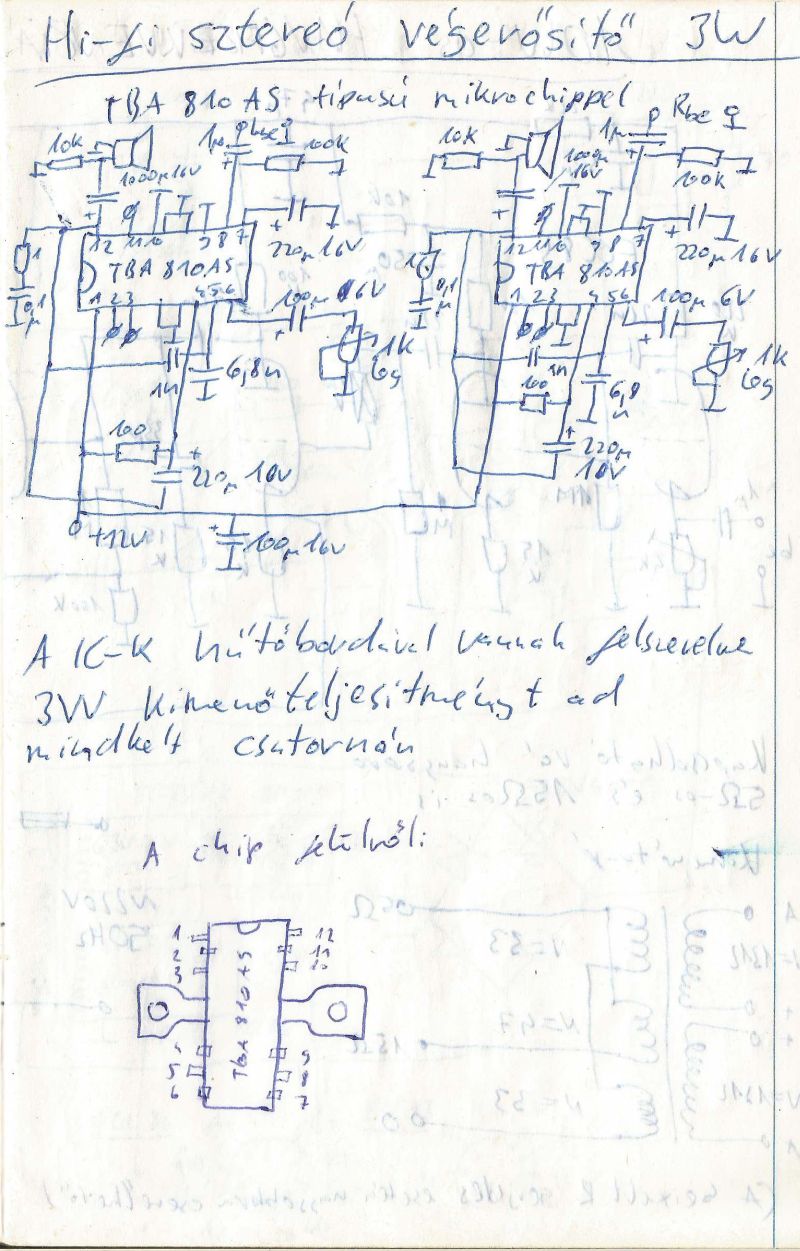 Hi-fi sztereó végerősítő 3W
TBA 810 AS típusú mikrochippel
10K
1000µ16V
1µ
Lbe
100K
10K
1000µ
16V
1µ
Rbe
100K
12 11 10 9 8 7
220µ 16V
12 11 10 9 8 7
220µ 16V
1
TBA 810AS
1
TBA 810AS
0,1
µ
1 2 3 4 5 6
100µ 6V
0,1
µ
1 2 3 4 5 6
100µ 6V
1n
6,8n
1K
log
1n
6,8
n
1K
log
100
220µ 10V
100
220µ
10V
+12V
100µ16V
A IC-K hűtőbordával vannak felszerelve
3W kimenőteljesítményt ad
mindkét csatornán
A chip felülről:
1 12
2 11
3 10
TBA 810 AS
4 9
5 8
6 7